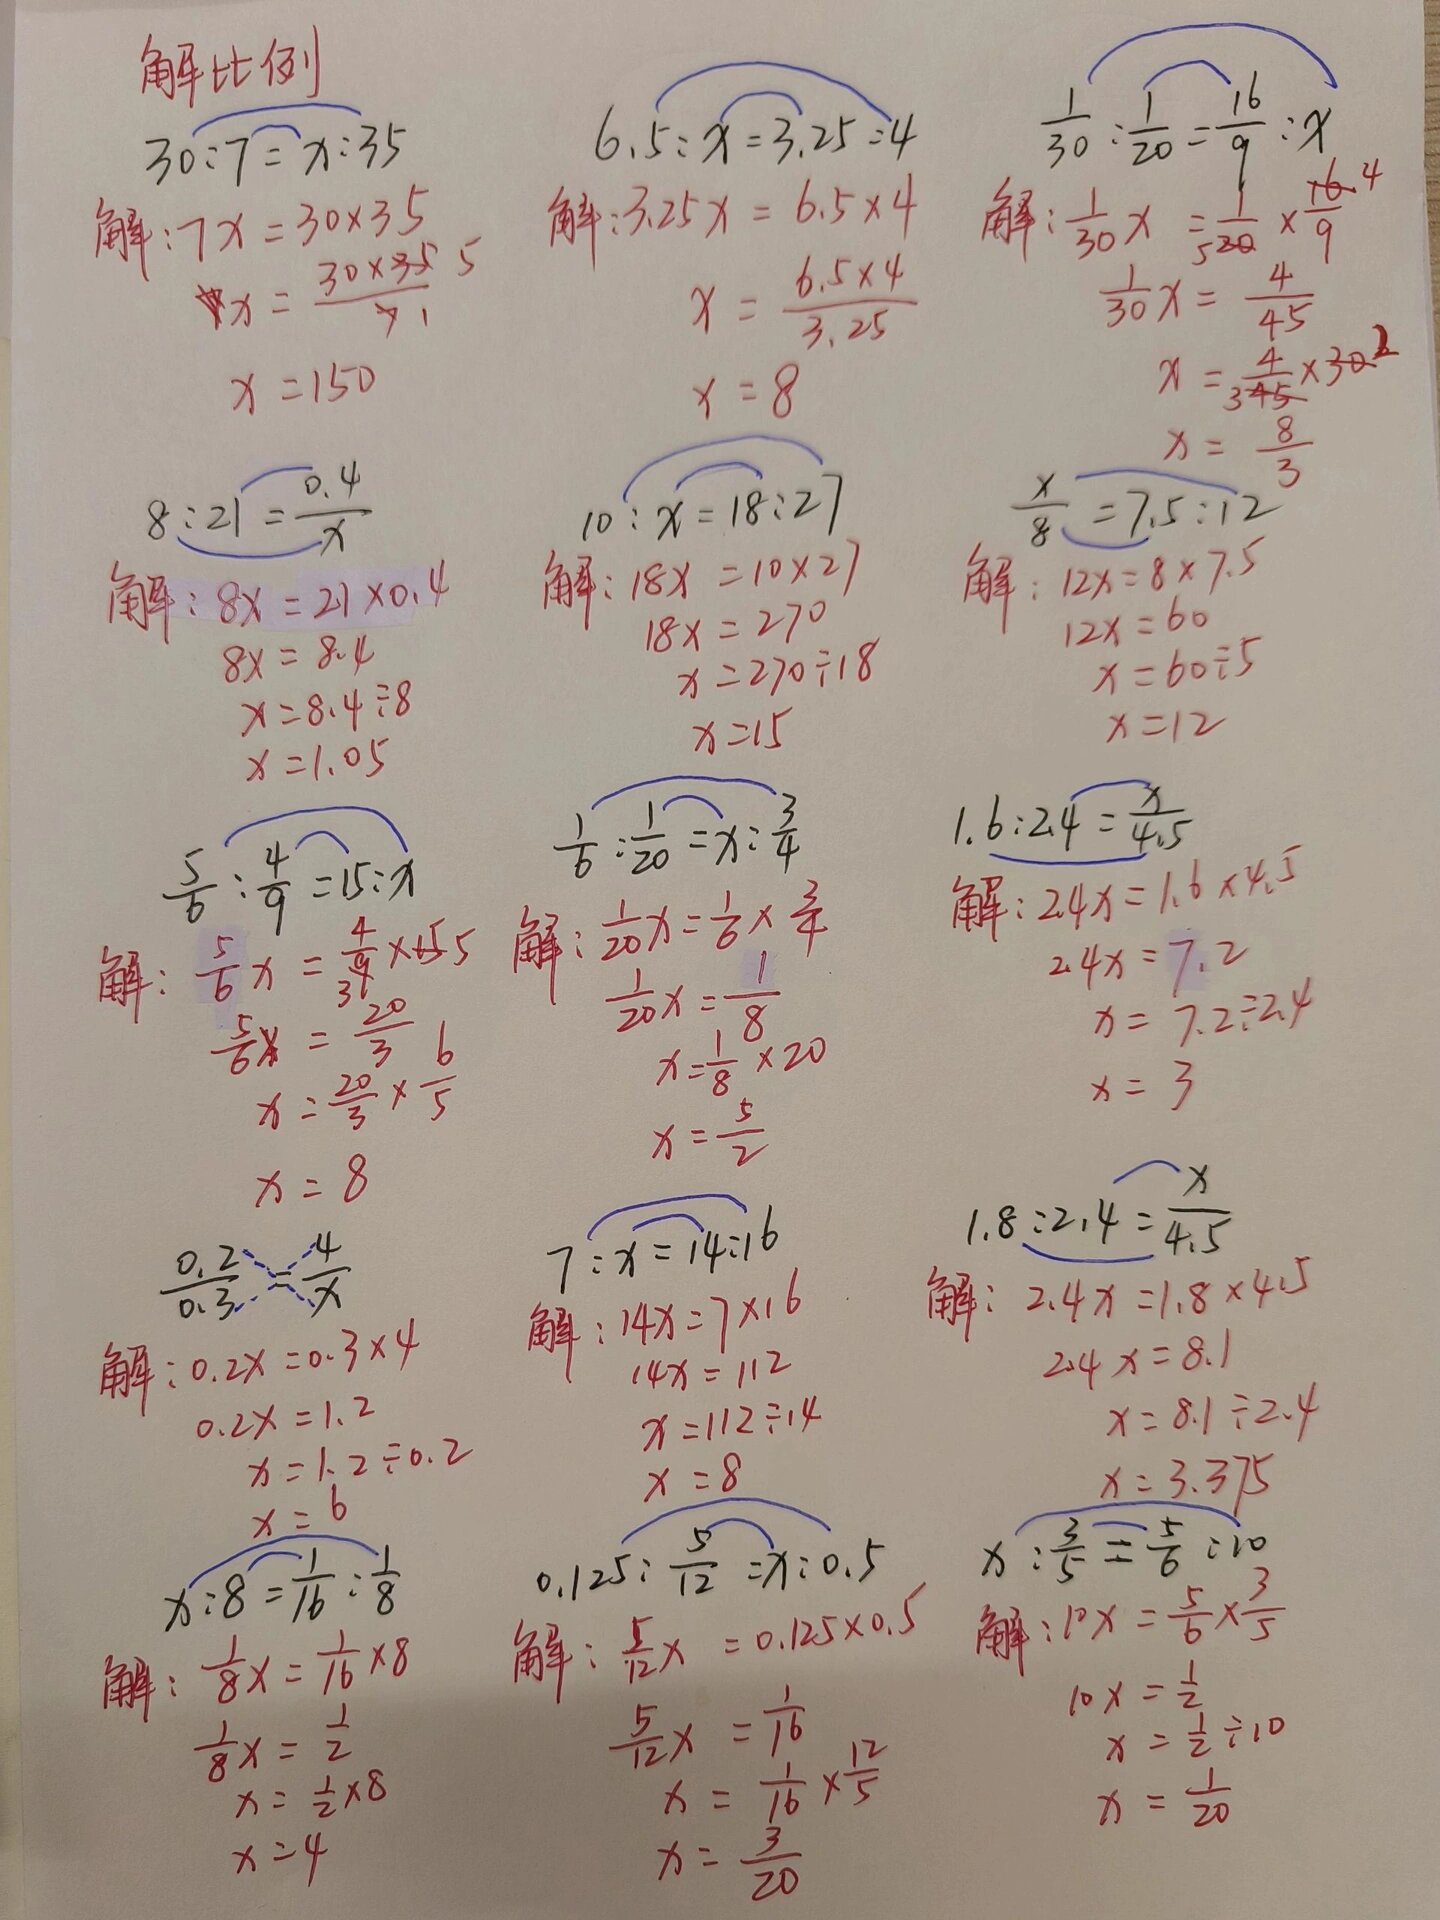 解比例
30:7=x:35
解:7x=30×35
x=30×35 5/7 1
x=150
6.5:x=3.25:4
解:3.25x=6.5×4
x=6.5×4/3.25
x=8
1/30:1/20=16/9:x
解:1/30x=1/20 5×16 4/9
1/30x=4/45
x=4/45 3×30 2
x=8/3
8:21=0.4/x
解:8x=21×0.4
8x=8.4
x=8.4÷8
x=1.05
10:x=18:27
解:18x=10×27
18x=270
x=270÷18
x=15
x/8=7.5:12
解:12x=8×7.5
12x=60
x=60÷5
x=12
5/6:4/9=15:x
解:5/6x=4/9 3×15 5
5/6x=20/3
x=20/3×6/5
x=8
1/6:1/20=x:3/4
解:1/20x=1/6×3/4
1/20x=1/8
x=1/8×20
x=5/2
1.6:2.4=x/4.5
解:2.4x=1.6×4.5
2.4x=7.2
x=7.2÷2.4
x=3
0.2/0.3=4/x
解:0.2x=0.3×4
0.2x=1.2
x=1.2÷0.2
x=6
7:x=14:16
解:14x=7×16
14x=112
x=112÷14
x=8
1.8:2.4=x/4.5
解:2.4x=1.8×4.5
2.4x=8.1
x=8.1÷2.4
x=3.375
x:8=1/16:1/8
解:1/8x=1/16×8
1/8x=1/2
x=1/2×8
x=4
0.125:5/12=x:0.5
解:5/12x=0.125×0.5
5/12x=1/16
x=1/16×12/5
x=3/20
x:3/5=5/6:10
解:10x=5/6×3/5
10x=1/2
x=1/2÷10
x=1/20